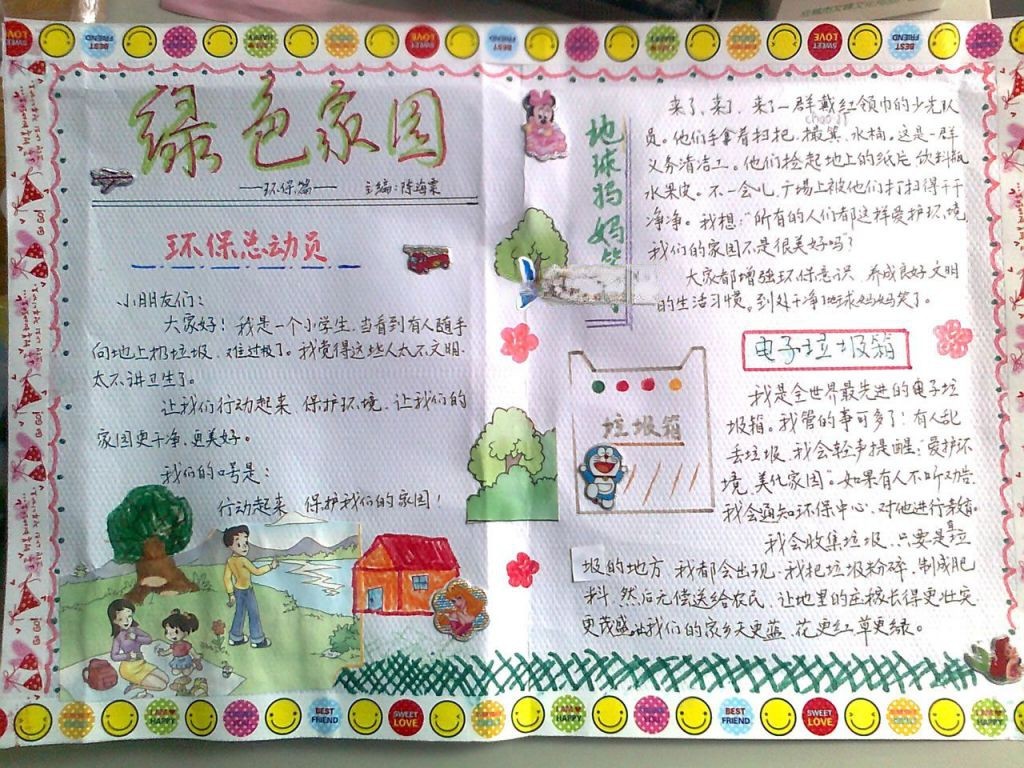 绿色家园
—环保篇— 主编:陈海霖
环保总动员
小朋友们:
大家好!我是一个小学生,当看到有人随手
向地上扔垃圾,难过极了。我觉得这些人太不文明,
太不讲卫生了。
让我们行动起来,保护环境,让我们的
家园更干净,更美好。
我们的口号是:
行动起来,保护我们的家园!
地球妈妈笑
来了,来了,来了一群戴红领巾的少先队
员。他们手拿着扫把,撮箕,水桶。这是一群
义务清洁工。他们捡起地上的纸片,饮料瓶
水果皮。不一会儿,广场上被他们打扫得干干
净净。我想:“所有的人们都这样爱护环境,
我们的家园不是很美好吗?
大家都增强环保意识,养成良好文明
的生活习惯。到处干净地球妈妈笑了。
电子垃圾箱
垃圾箱
我是全世界最先进的电子垃
圾箱。我管的事可多了:有人乱
丢垃圾,我会轻声提醒:“爱护环
境,美化家园”。如果有人不听劝告,
我会通知环保中心,对他进行教育。
我会收集垃圾,只要是有垃
圾的地方,我都会出现,我把垃圾粉碎,制成肥
料,然后无偿送给农民,让地里的庄稼长得更壮实
更茂盛。让我们的家乡天更蓝,花更红,草更绿。
BEST FRIEND
SWEET LOVE
I AM HAPPY